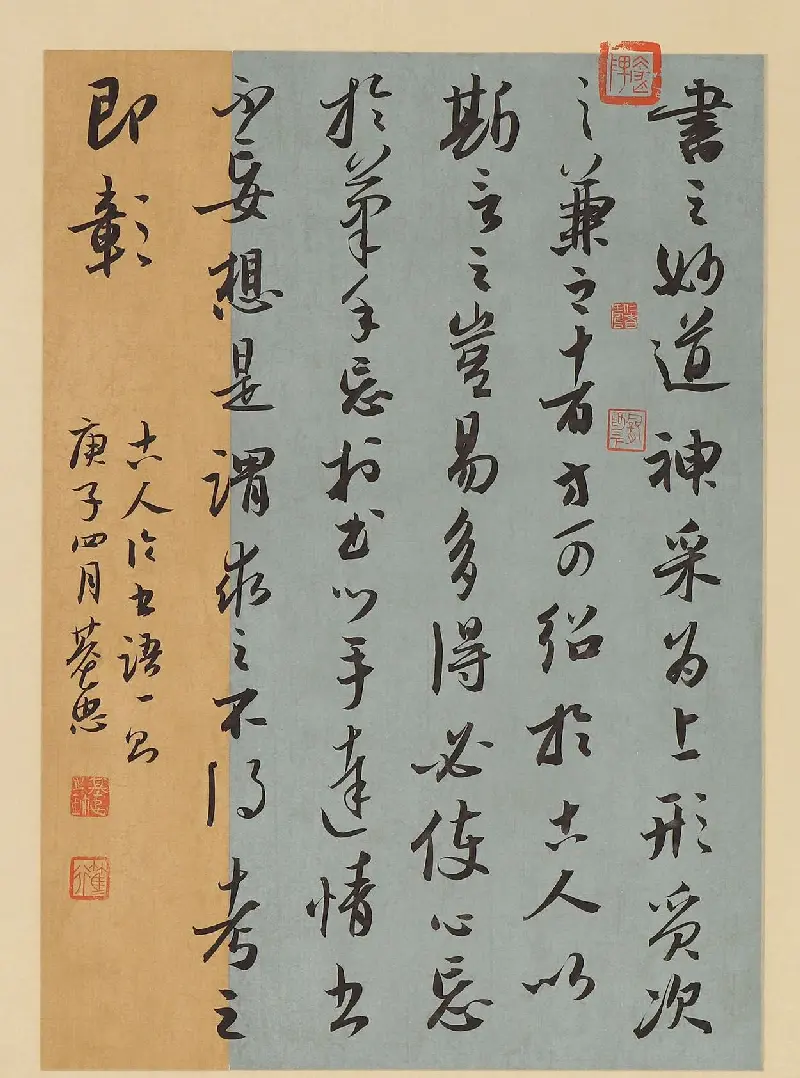 書之妙道神采为上形質次
之兼之者方可紹於古人以
斯言之豈易多得必使心忘
於筆手忘於書心手達情書
不妄想是謂求之不得考之
即彰
古人论書語一則
庚子四月